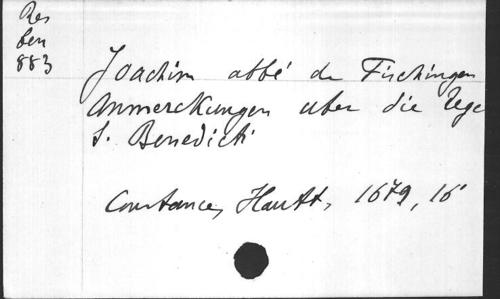 Res
ben
883
Joachim abbé de Fischingen
Anmerckungen uber die Rege
S. Benedicti
Constance, Hautt, 1679, 16°